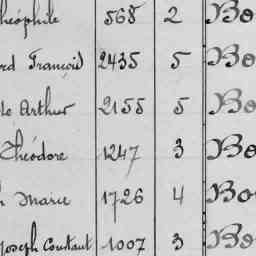 Théophile 568 2 Bo
rd François 2435 5 Bo
le Arthur 2155 5 Bo
Théodore 1247 3 Bo
h Marie 1726 4 Bo
Joseph Constant 1007 3 Bo